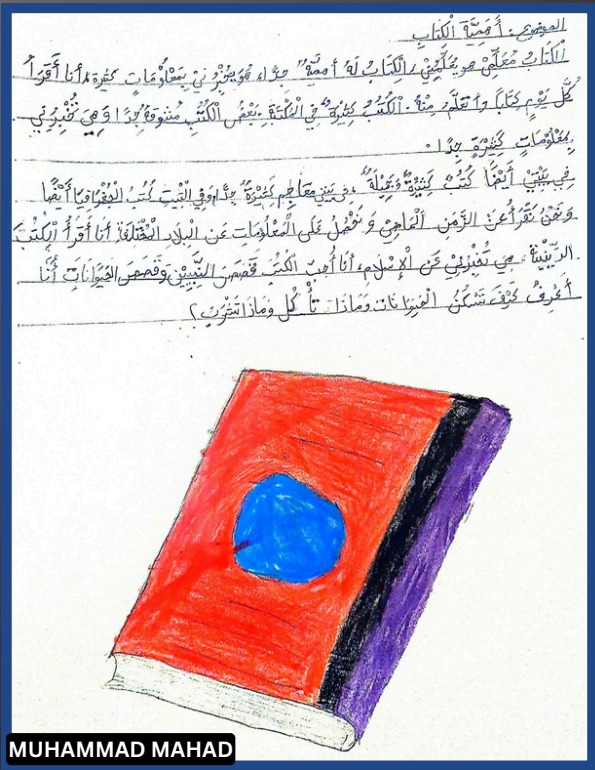 الموضوع: أَهَمِّيَّةُ الْكِتَابِ
الكِتَابُ مُعَلِّمِيْ هو يُعَلِّمُنِيْ، الْكِتَابُ لَهُ أَهمِيَّةٌ جِدًّا، هُوَ يُخْبِرُنِيْ بِمَعْلُوْمَاتٍ كَثِيْرَةٍ، أنا أَقْرَأُ
كُلَّ يَوْمٍ كِتَاباً وأتَعَلَّمُ مِنْهُ. الْكُتُبُ كَثِيْرَةٌ فِي الْمَكْتَبَةِ. بَعْضُ الْكُتُبِ جِدًا وَهِيَ تُخْبِرُنِي
بِمَعْلُوْمَاتٍ كَثِيْرَةٍ جِدًا.
فِي بَيْتِيْ أَيْضًا كُتُبٌ كَثِيْرَةٌ وَجَمِيْلَةٌ، فِي بَيْتِي مَعَاجِم كَثِيْرَةٌ جِدًّا، وفِي الْبَيْتِ كُتُبُ الْجُغْرَافِيَا أَيْضًا
وَنَحْنُ نَقْرَأُ عَنْ الزَّمَنِ الْمَاضِيْ وَنَحْصُلُ عَلَى الْمَعْلُوْمَاتِ عَنِ الْبِلَادِ الْمُخْتَلِفَةِ أنا أَقْرَأُ الْكُتُبَ
الدِّيْنِيَّةَ، هِيَ تُخْبِرُنِيْ عَنِ الْإِسْلَامِ، أنَا أُحِبُّ الْكُتُبَ قَصَصَ النَّبِيِّيْنَ وَقَصَصَ الحَيَوَانَاتِ أَنَا
أَعْرِفُ كَيْفَ تَسْكُنُ الْحَيَوَانَات وَمَاذَا تَأْكُل وَمَاذَا تَشْرَبُ؟
MUHAMMAD MAHAD